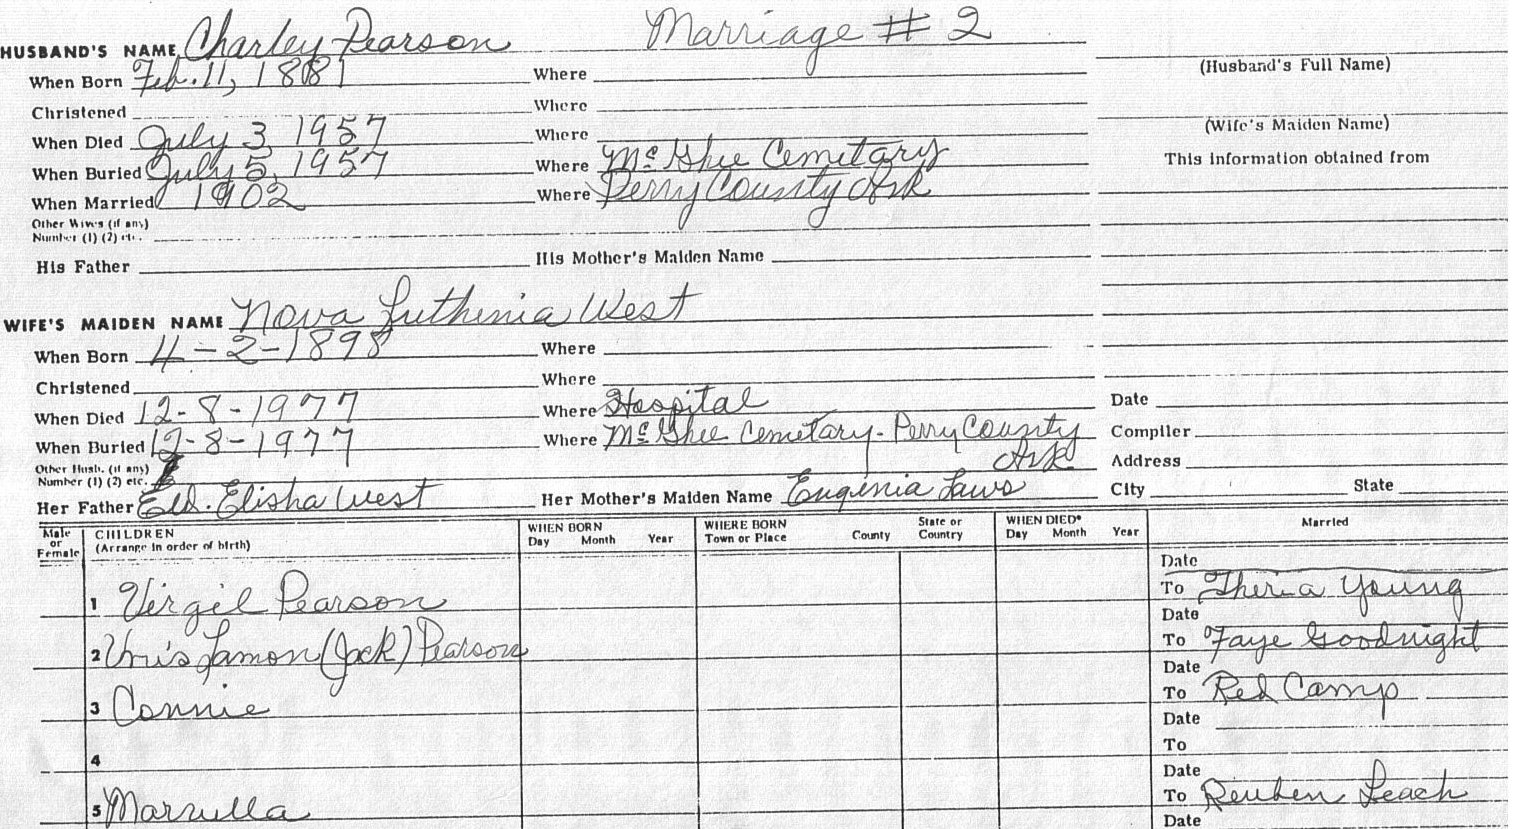 Marriage # 2
HUSBAND'S NAME Charley Pearson
(Husband's Full Name)
When Born Feb. 11, 1881 Where
Christened Where
(Wife's Maiden Name)
When Died July 3, 1957 Where
This information obtained from
When Buried July 5, 1957 Where McGhee Cemetary
When Married 1902 Where Perry County Ark
Other Wives (if any)
Number (1) (2) etc.
His Father His Mother's Maiden Name
WIFE'S MAIDEN NAME Nova Luthinia West
When Born 4-2-1898 Where
Christened Where
When Died 12-8-1977 Where Hospital Date
When Buried 12-8-1977 Where McGhee Cemetary - Perry County Compiler
Ark
Other Husb. (if any)
Number (1) (2) etc. Address
Her Father Eld. Elisha West Her Mother's Maiden Name Eugenia Laws City State
Male or Female CHILDREN (Arrange in order of birth) WHEN BORN Day Month Year WHERE BORN Town or Place County State or Country WHEN DIED* Day Month Year Married
Date
1 Virgil Pearson To Theria Young
Date
2 Lamon (Jack) Pearson To Faye Goodnight
Date
3 Connie To Red Camp
Date
4 To
Date
5 Marzulla To Reuben Leach
Date